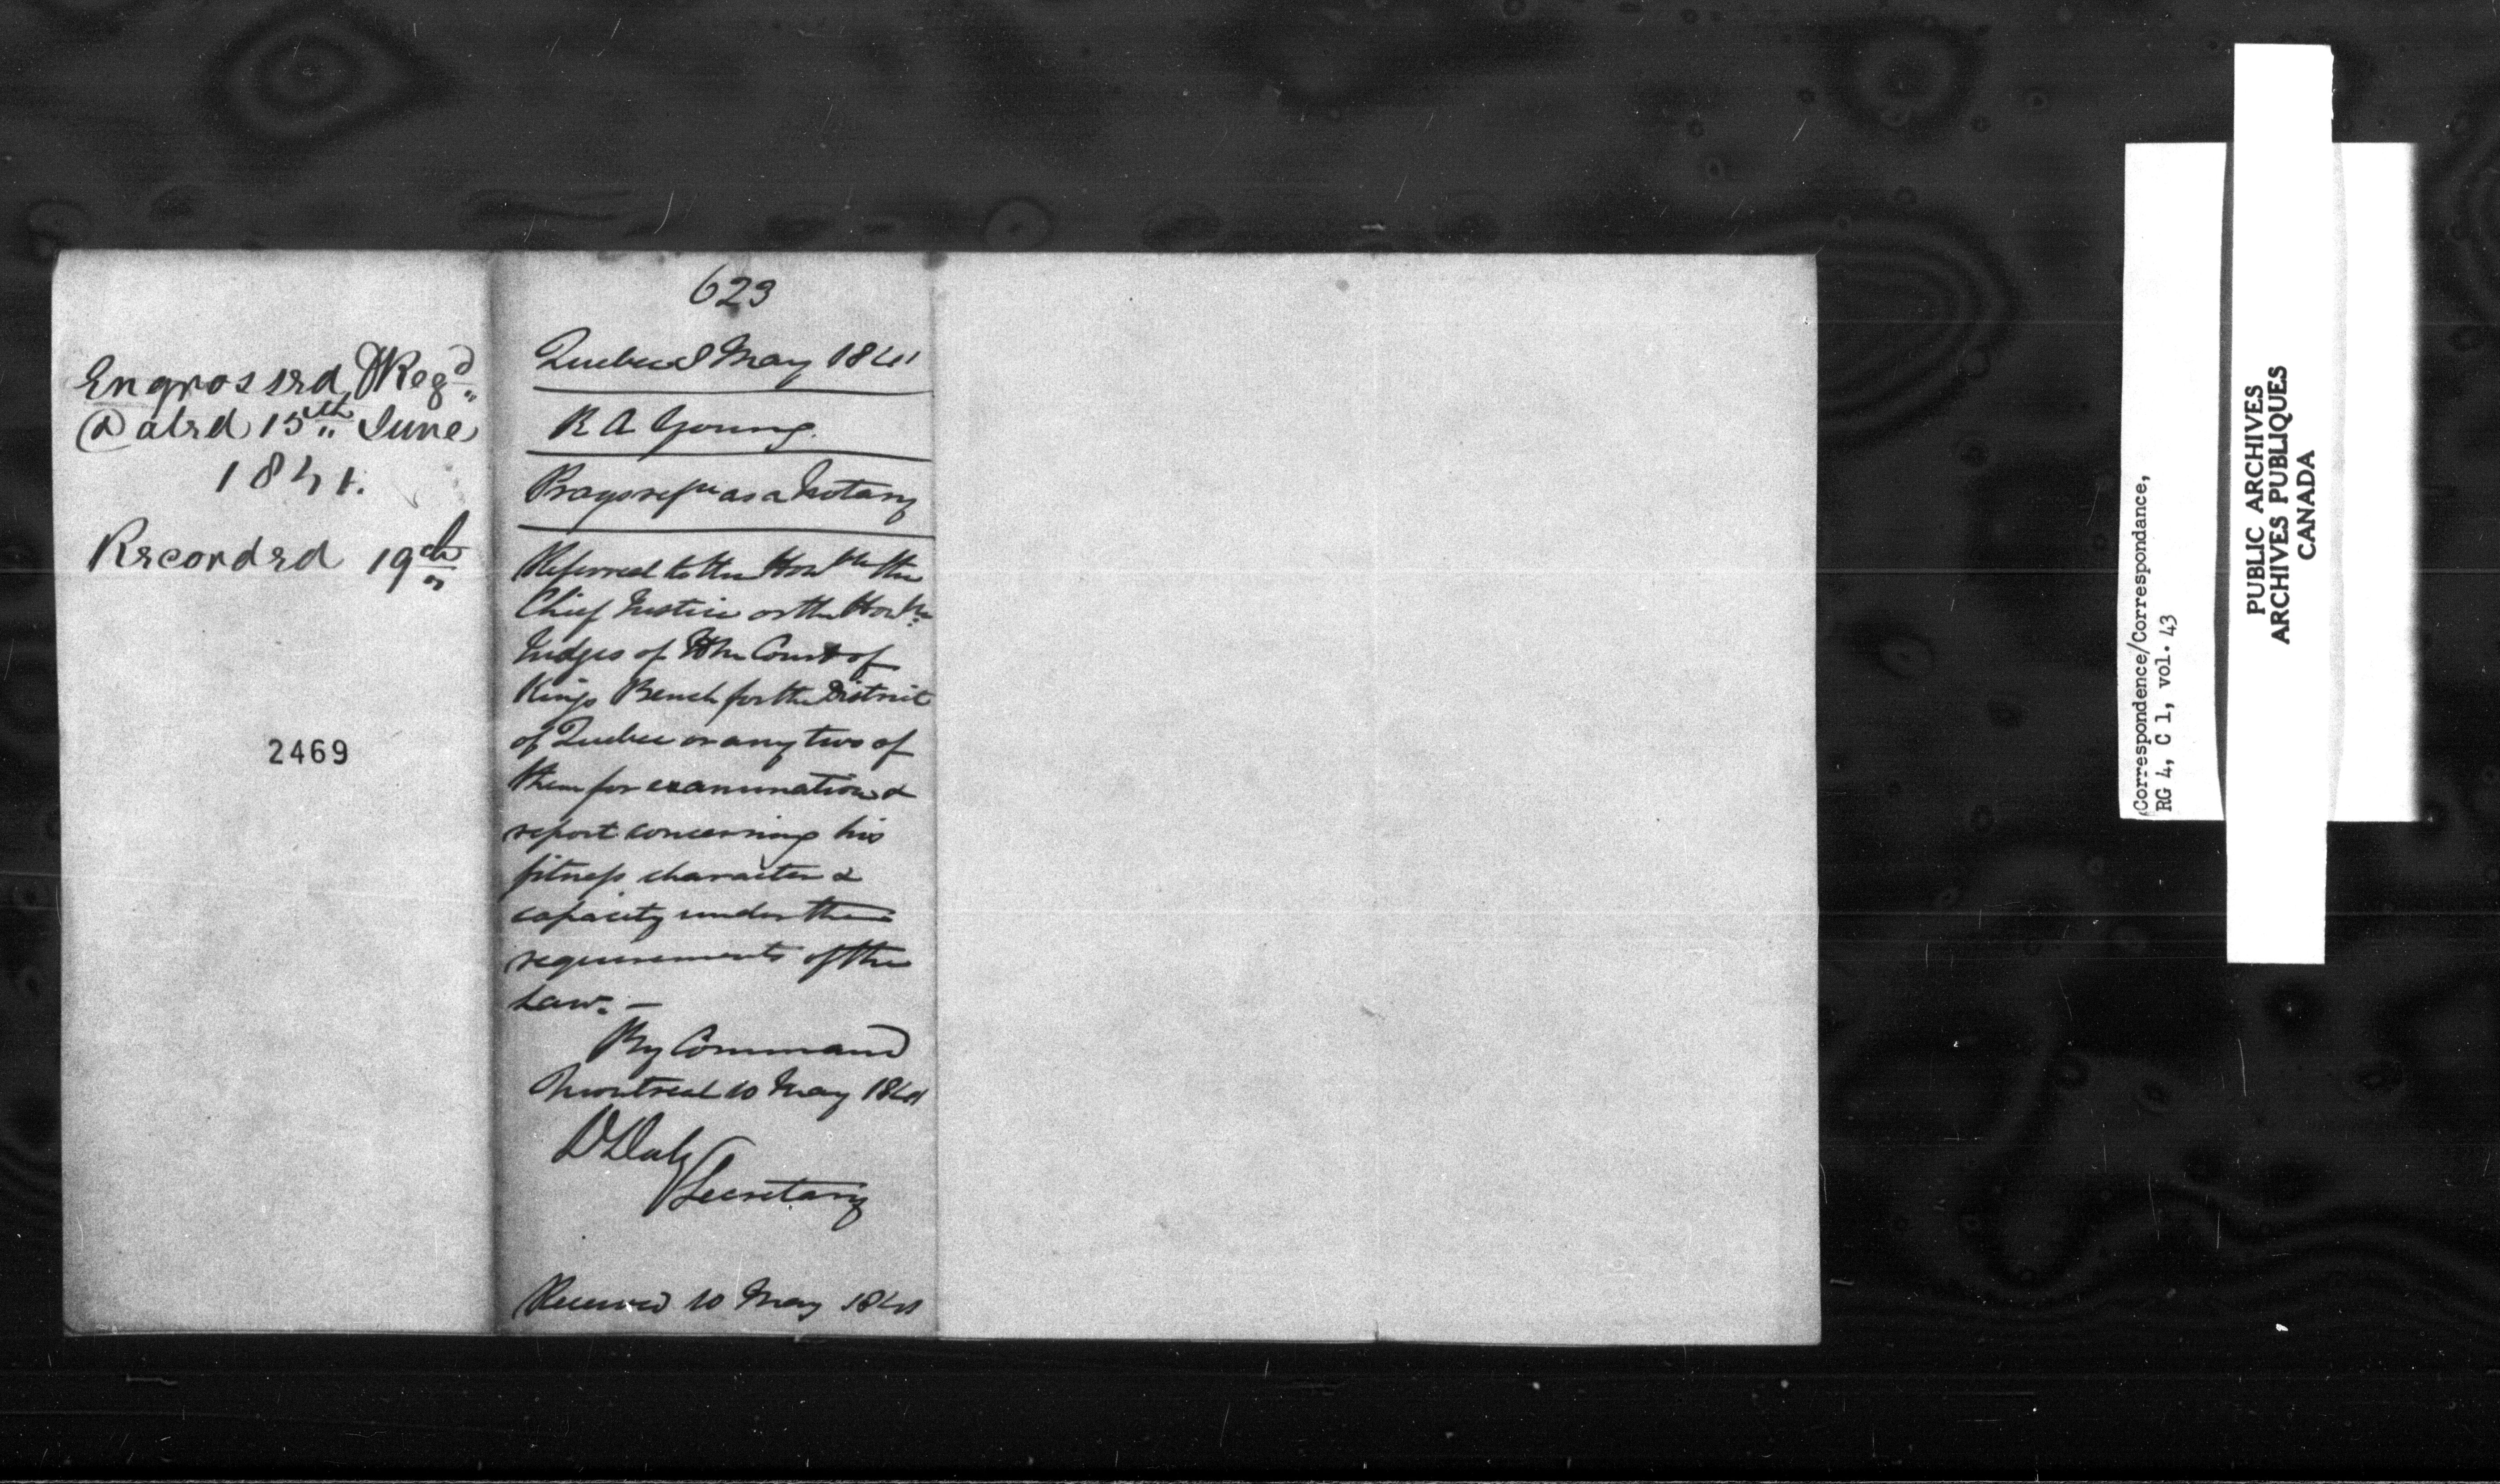 Engrossed, & Reg^d
Dated 15th June
1841.
Recorded 19th
2469
623
Quebec 8 May 1841
R A Young.
Prays as a Notary
Referred to the Honble the
Chief Justice or the Honble
Judges of the Court of
Kings Bench for the District
of Quebec or any two of
them for examination &
report concerning his
fitness character &
capacity under the
requirements of the
Law. —
By Command
Montreal 10 May 1841
D Daly
Secretary
Received 10 May 1841
Correspondence/Correspondance,
RG 4, C 1, vol. 43
PUBLIC ARCHIVES
ARCHIVES PUBLIQUES
CANADA